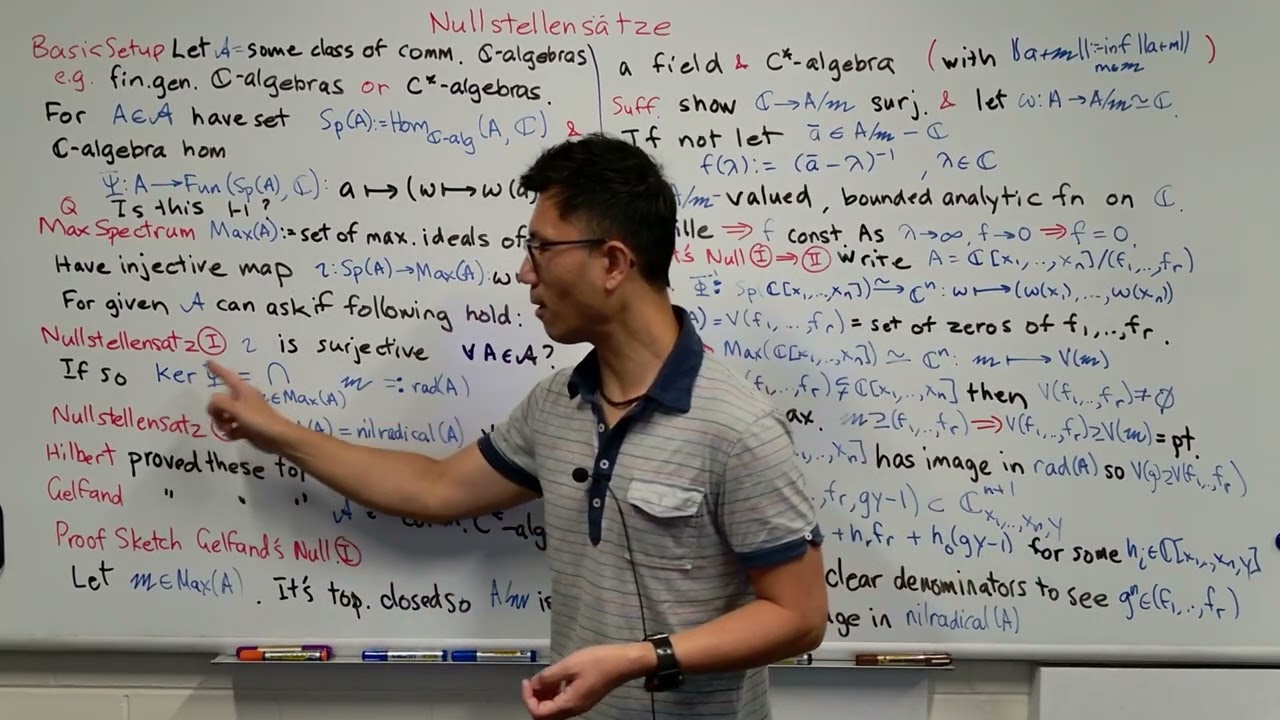 Nullstellensätze
Basic Setup Let A = some class of comm. ℂ-algebras
e.g. fin.gen. ℂ-algebras or C*-algebras.
For A∈A have set Sp(A):=Hom_ℂ-alg(A, ℂ) &
ℂ-algebra hom
Ψ: A→Fun(Sp(A), ℂ): a ↦ (ω↦ω(a
Q Is this 1-1?
Max Spectrum Max(A):=set of max. ideals of
Have injective map ι:Sp(A)→Max(A):ω
For given A can ask if following hold:
Nullstellensatz Ⓘ ι is surjective ∀A∈A?
If so Ker Ψ = ∩ m =: rad(A)
∈Max(A)
Nullstellensatz (A) = nilradical(A)
Hilbert proved these for
Gelfand " " "
C*-alg
Proof Sketch Gelfand's Null Ⓘ
Let m∈Max(A). It's top. closed so A/m is
a field & C*-algebra (with ‖a+m‖:=inf ‖a+m‖)
m∈m
Suff. show ℂ→A/m surj. & let ω: A→A/m≃ℂ.
If not let ā ∈ A/m - ℂ
f(λ):= (ā-λ)⁻¹, λ∈ℂ
A/m-valued, bounded analytic fn on ℂ.
ille ⇒ f const. As λ→∞, f→0 ⇒ f = 0.
t's Null Ⓘ⇒Ⓘ︎Ⓘ Write A = ℂ[x₁,..,xₙ]/(f₁,..,fᵣ)
Sp(ℂ[x₁,..,xₙ]) ≃ ℂⁿ: ω↦(ω(x₁),...,ω(xₙ))
) = V(f₁,..,fᵣ) = set of zeros of f₁,..,fᵣ.
Max(ℂ[x₁,..,xₙ]) ≃ ℂⁿ: m ↦ V(m)
(f₁,..,fᵣ)⊊ℂ[x₁,..,xₙ] then V(f₁,..,fᵣ)≠∅
ax. m⊇(f₁,..,fᵣ) ⇒ V(f₁,..,fᵣ)⊇V(m) = pt.
,xₙ] has image in rad(A) so V(g)⊇V(f₁,..,fᵣ)
,fᵣ,gy-1) ⊂ ℂⁿ⁺¹
x₁,..,xₙ,y
+ hᵣfᵣ + h₀(gy-1) for some hᵢ∈ℂ[x₁,..,xₙ,y]
clear denominators to see gⁿ∈(f₁,..,fᵣ)
ge in nilradical(A)